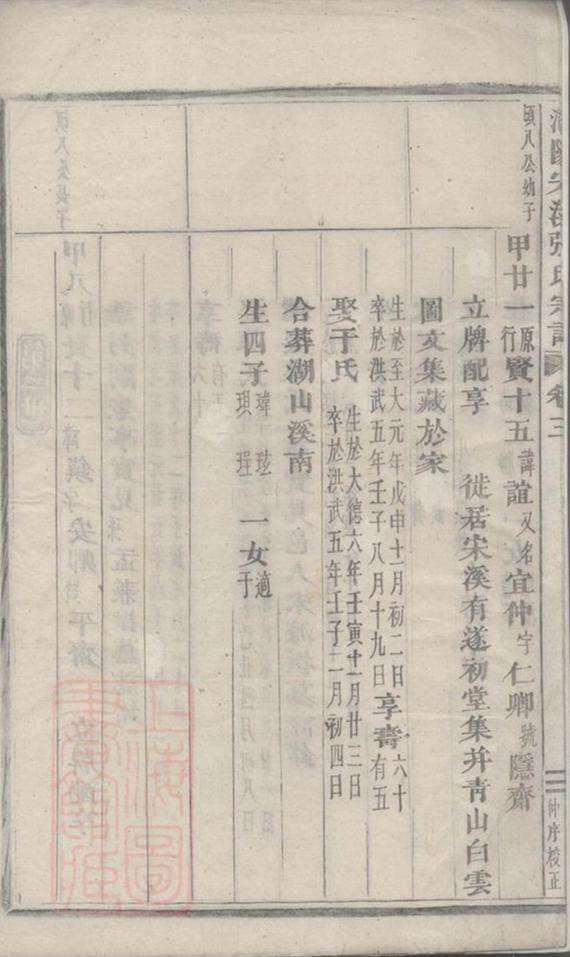 浦陽宋溪張氏宗譜 卷三
三 仲序校正
頃八公幼子
甲廿一原行賢十五諱誼又名宜仲字仁卿號隱齋
立牌配享 徙居宋溪有遂初堂集并青山白雲
圖文集藏於家
生於至大元年戊申十一月初二日享壽六十
卒於洪武五年壬子八月十九日有五
娶于氏 生於大德六年壬寅十一月廿三日
卒於洪武五年壬子二月初四日
合葬湖山溪南
生四子 瑋 玹 珼 珵 一女適于
上海圖書館藏